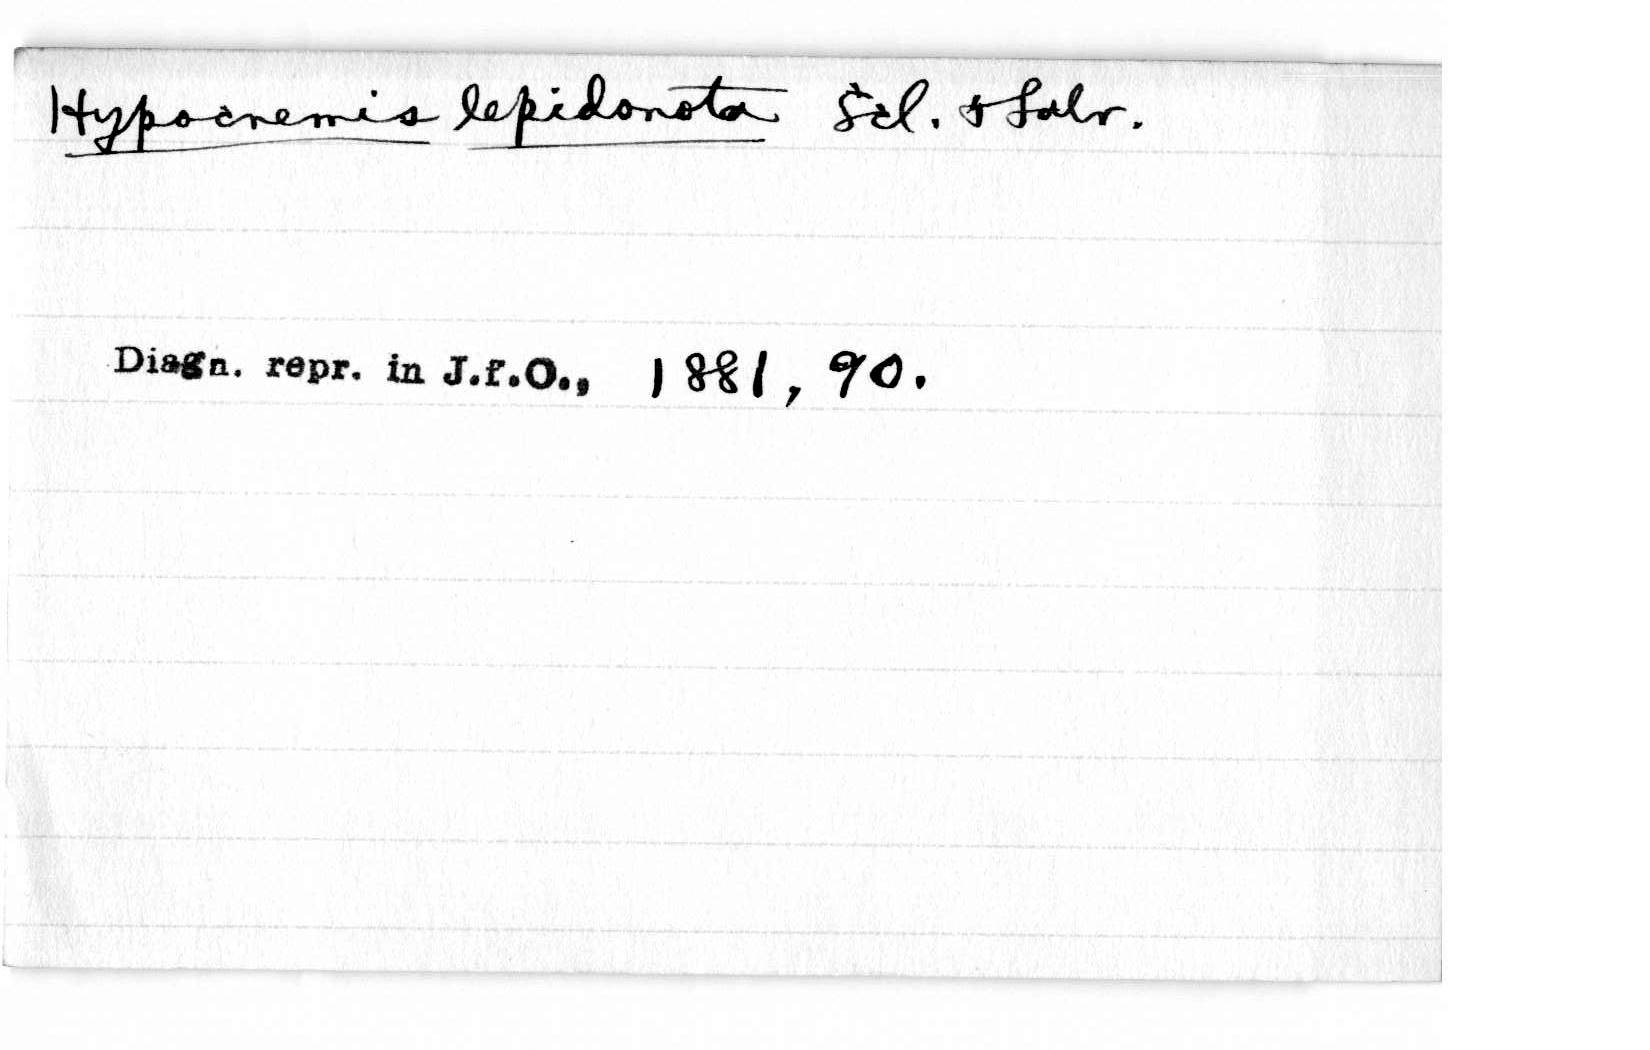 Hypocnemis lepidonota Scl. & Salv.
Diagn. repr. in J.f.O., 1881, 90.